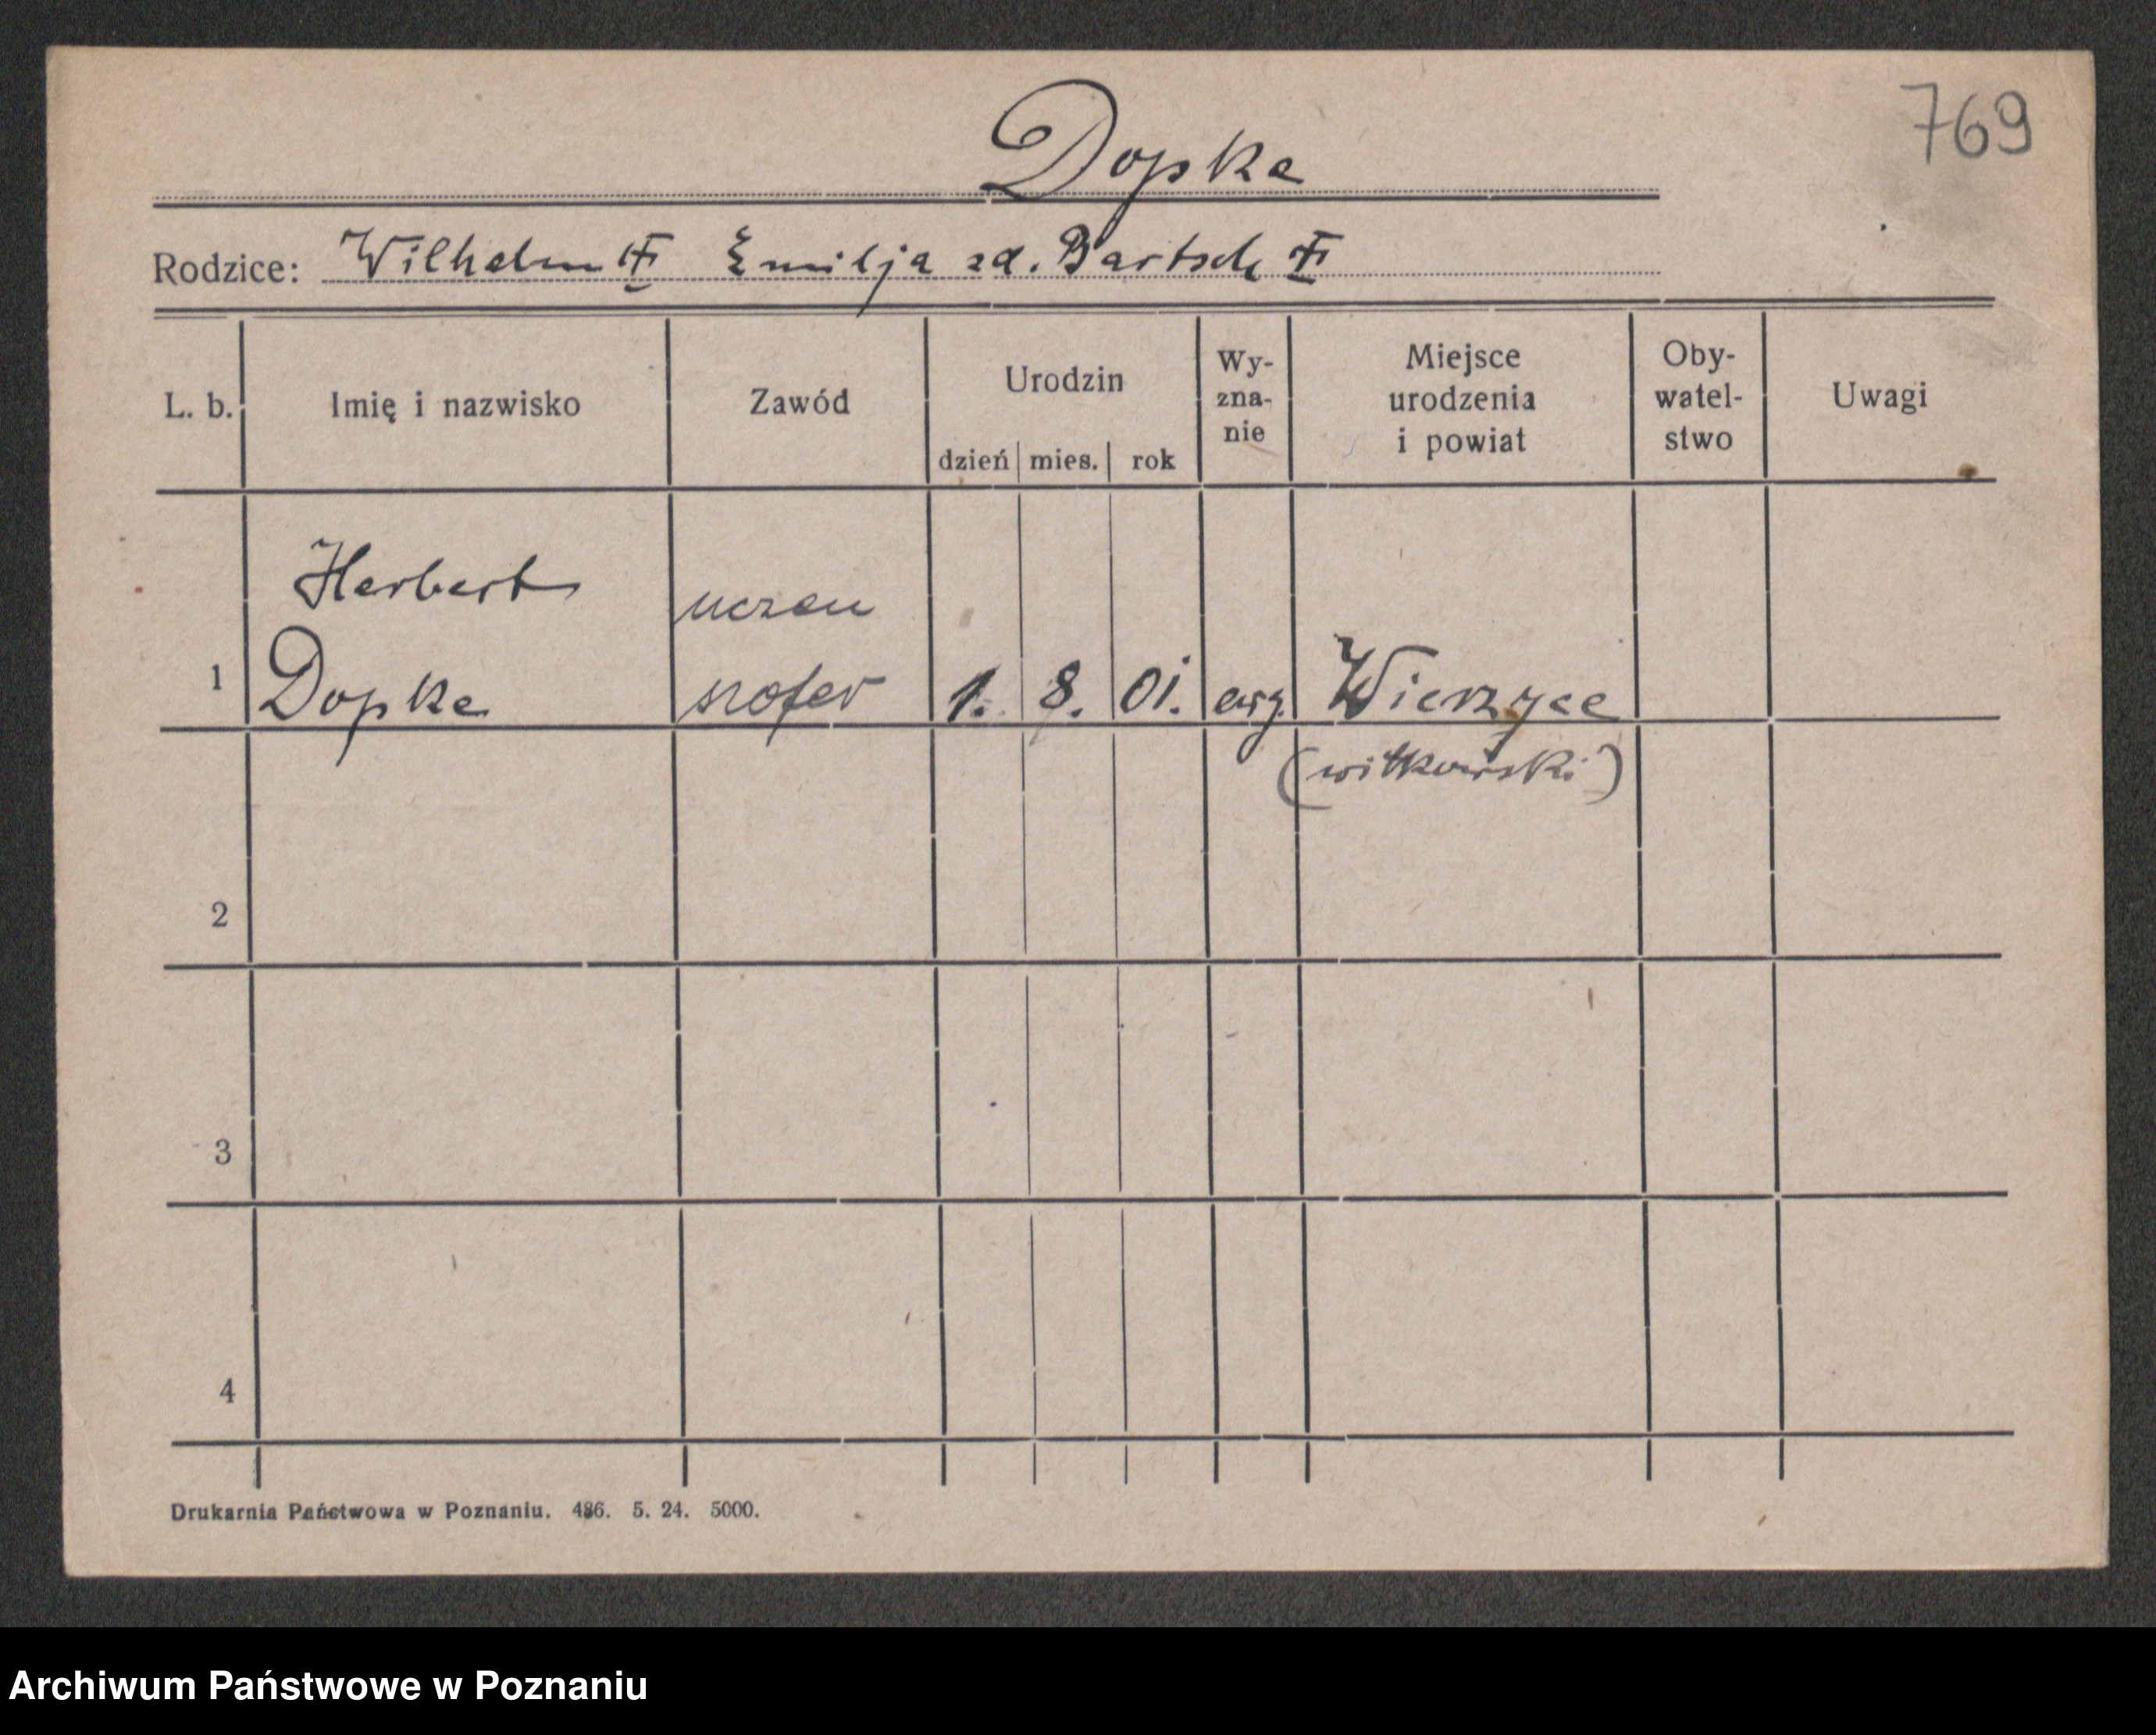 769
Dopke
Rodzice: Wilhelm Emilja zd. Bartsch
L. b. Imię i nazwisko Zawód Urodzin dzień mies. rok Wy-zna-nie Miejsce urodzenia i powiat Oby-watel-stwo Uwagi
Herbert uczeń
1 Dopke szofer 1. 8. 01. ewg. Wierzyce
(witkowski)
2
3
4
Drukarnia Państwowa w Poznaniu. 486. 5. 24. 5000.
Archiwum Państwowe w Poznaniu